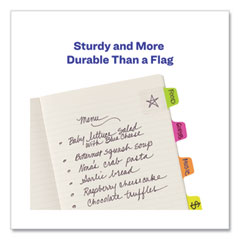 Sturdy and More
Durable Than a Flag
Menu
Baby lettuce Salad
with Blue Cheese
Butternut squash soup
Nona's crab pasta
Garlic bread
Raspberry cheesecake
Chocolate truffles
FOOD
MUSIC
$